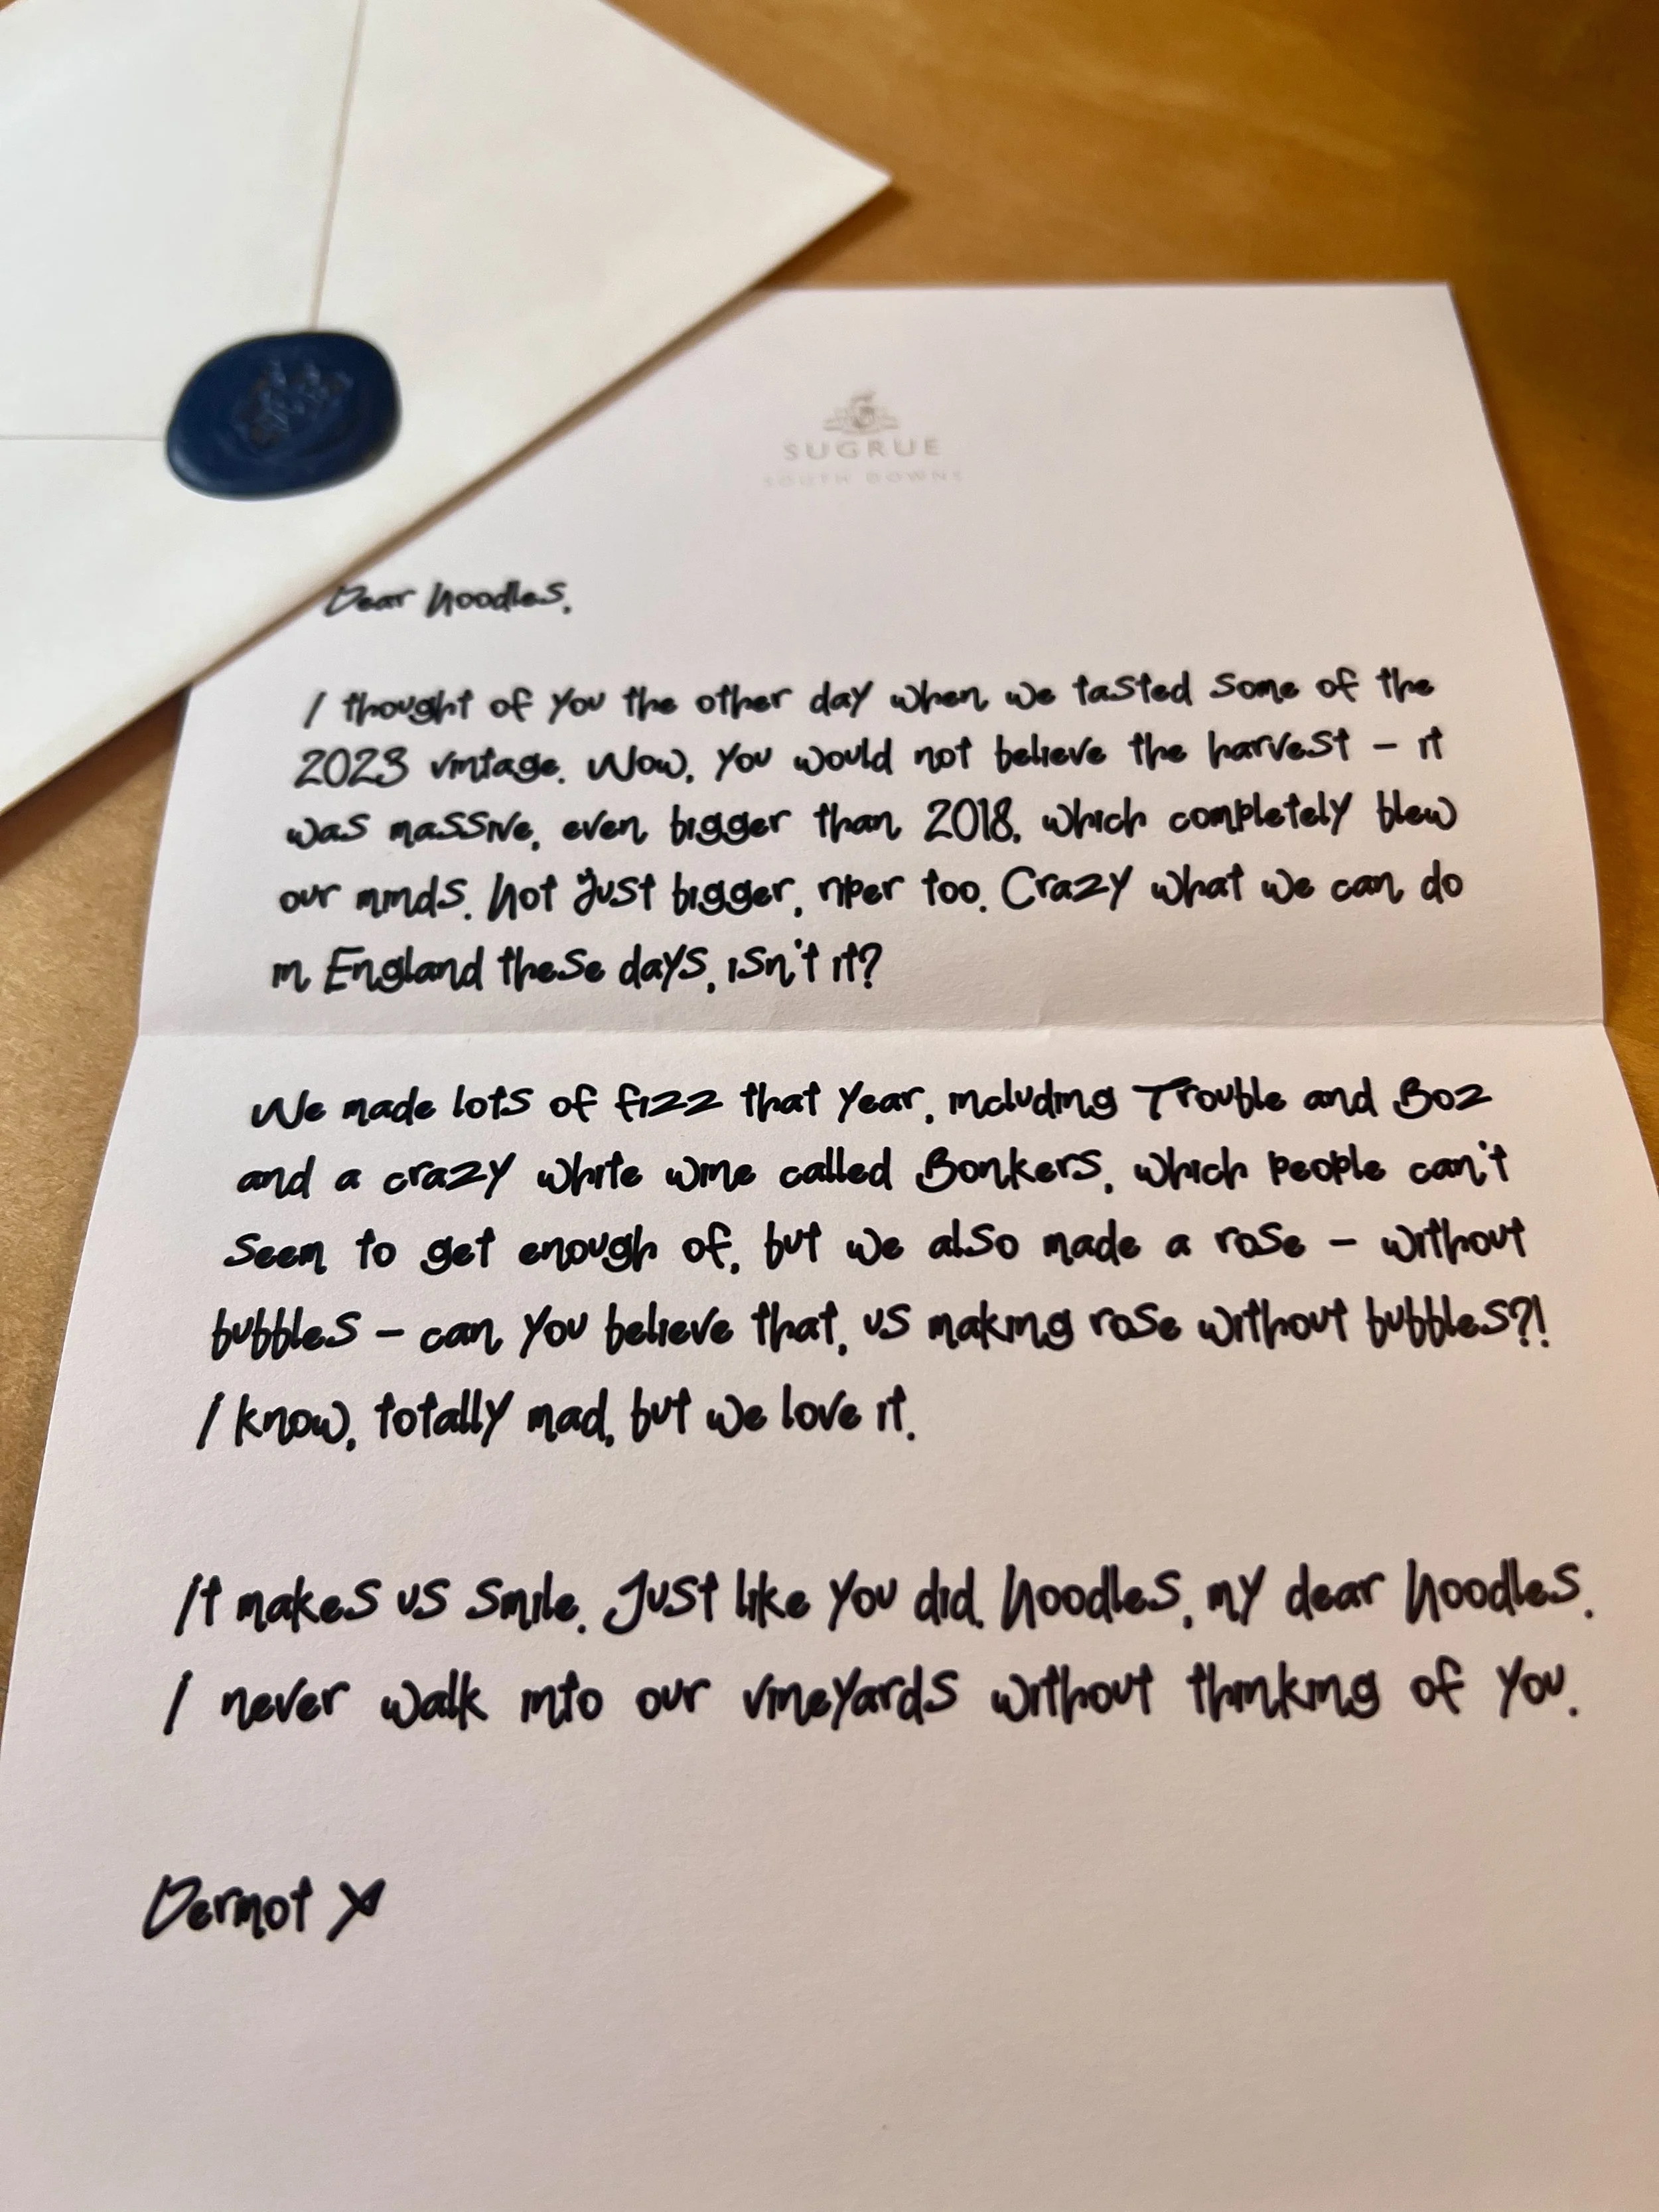 SUGRUE
SOUTH DOWNS
Dear Noodles,
I thought of you the other day when we tasted some of the
2023 vintage. Wow, you would not believe the harvest – it
was massive, even bigger than 2018, which completely blew
our minds. Not just bigger, riper too. Crazy what we can do
in England these days, isn't it?
We made lots of fizz that year, including Trouble and Boz
and a crazy white wine called Bonkers, which people can't
seem to get enough of, but we also made a rose – without
bubbles – can you believe that, us making rose without bubbles?!
I know, totally mad, but we love it.
It makes us smile. Just like you did. Noodles, my dear Noodles.
I never walk into our vineyards without thinking of you.
Dermot X